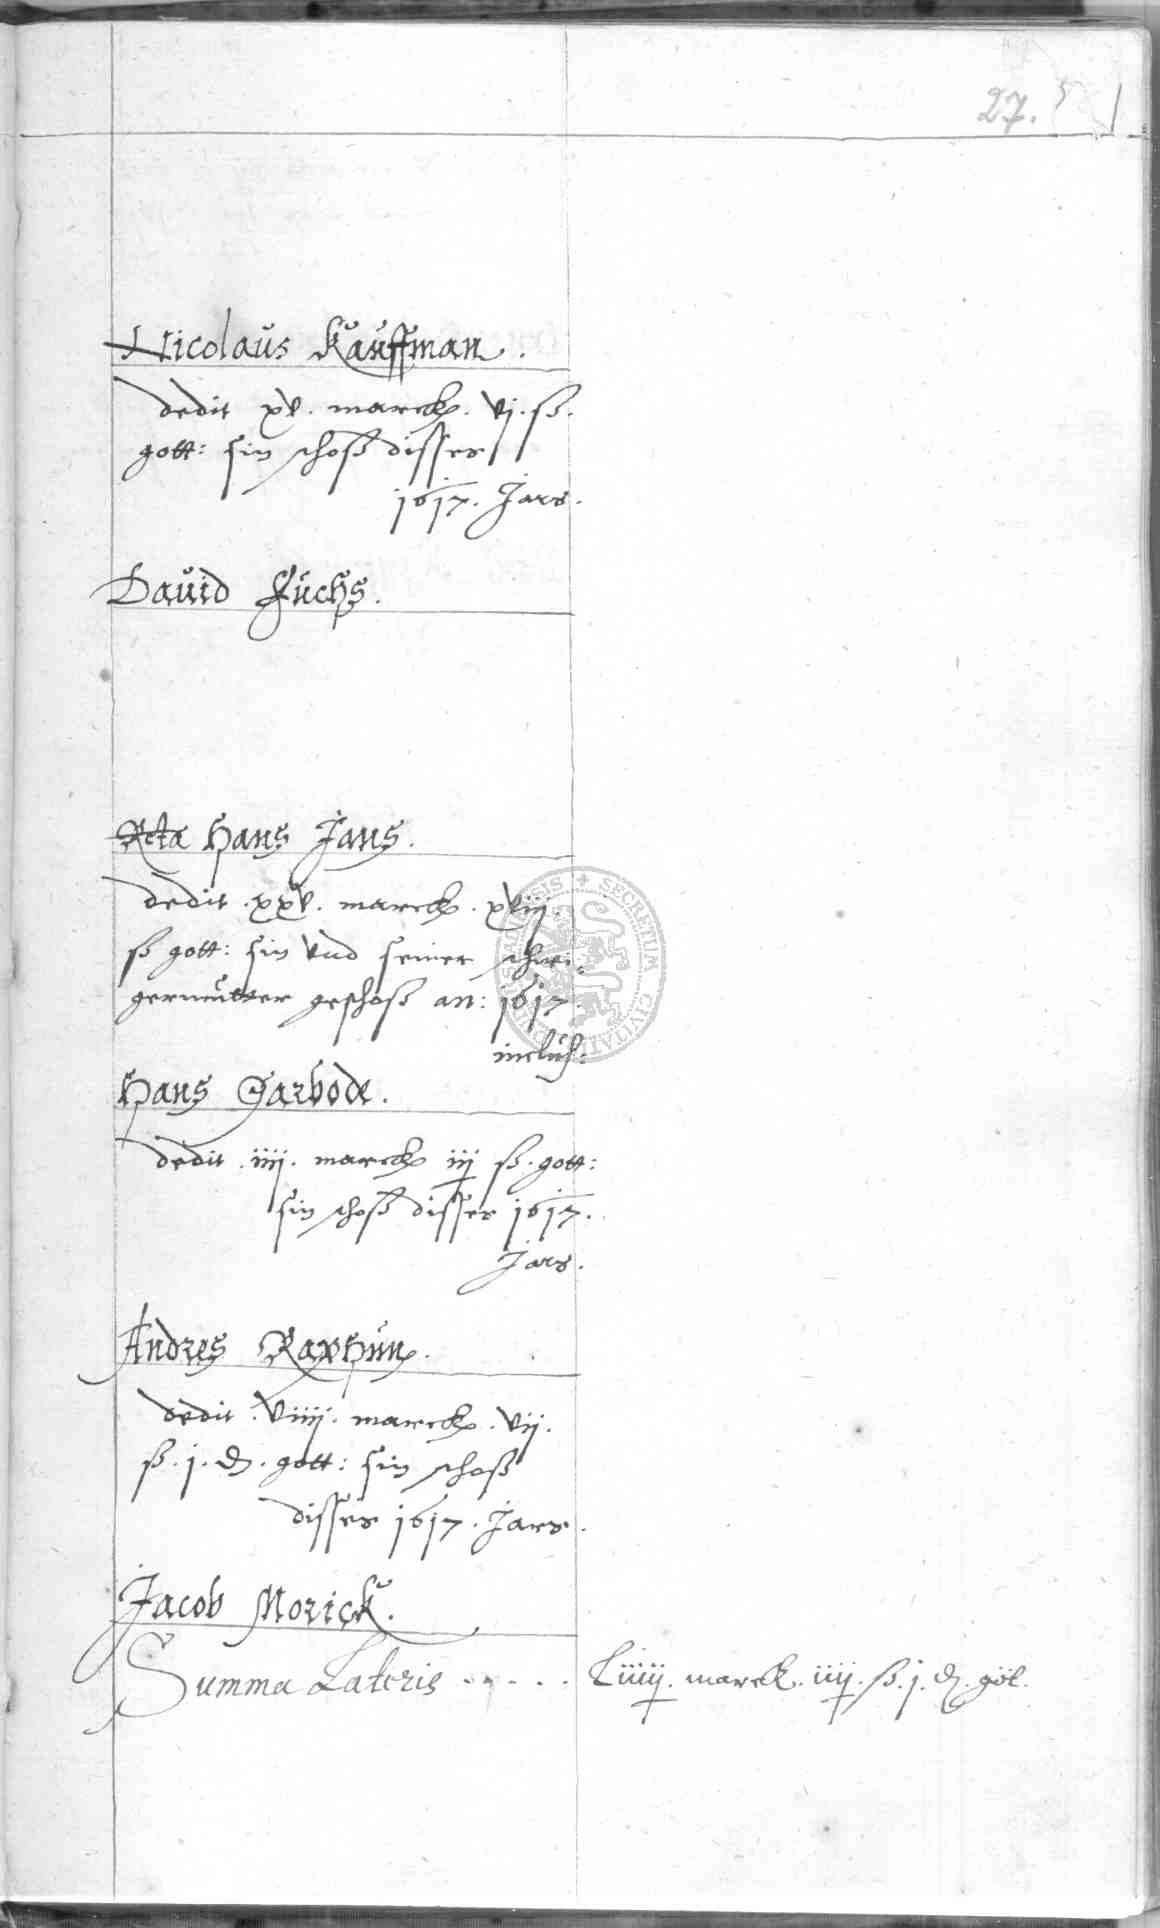 27.
Nicolaus Kauffman.
dedit xv. marck. vj. ß.
gott: sin schoß disses
1617. Jars.
David Fuchs.
Hans Jans.
dedit. xxv. marck. xviij.
ß gott: sin vnd seiner schwi=
germutter geschoß an: 1617.
inclus:
Hans Garbode.
dedit. iiij. marck iij ß. gott:
sin schoß disses 1617.
Jars.
Andres Raphun.
dedit. viiij. marck. vij.
ß. j. ₰. gott: sin schoß
disses 1617. Jars.
Jacob Morick.
Summa Lateris . . . . . Liiij. marck. iij. ß. j. ₰.
SECRETUM CIVITATIS